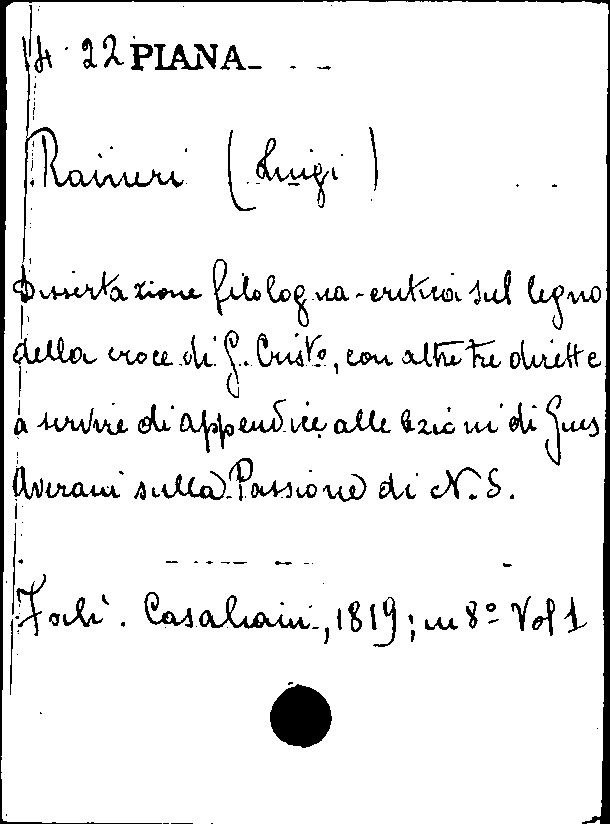 14. 22 PIANA
Raineri (Luigi)
Dissertazione filologica-critica sul legno
della croce di G. Cristo, con altre tre dirette
a servire di appendice alle lezioni di Gius
Averani sulla Passione di N. S.
Forlì. Casaliani, 1819; in 8º Vol 1